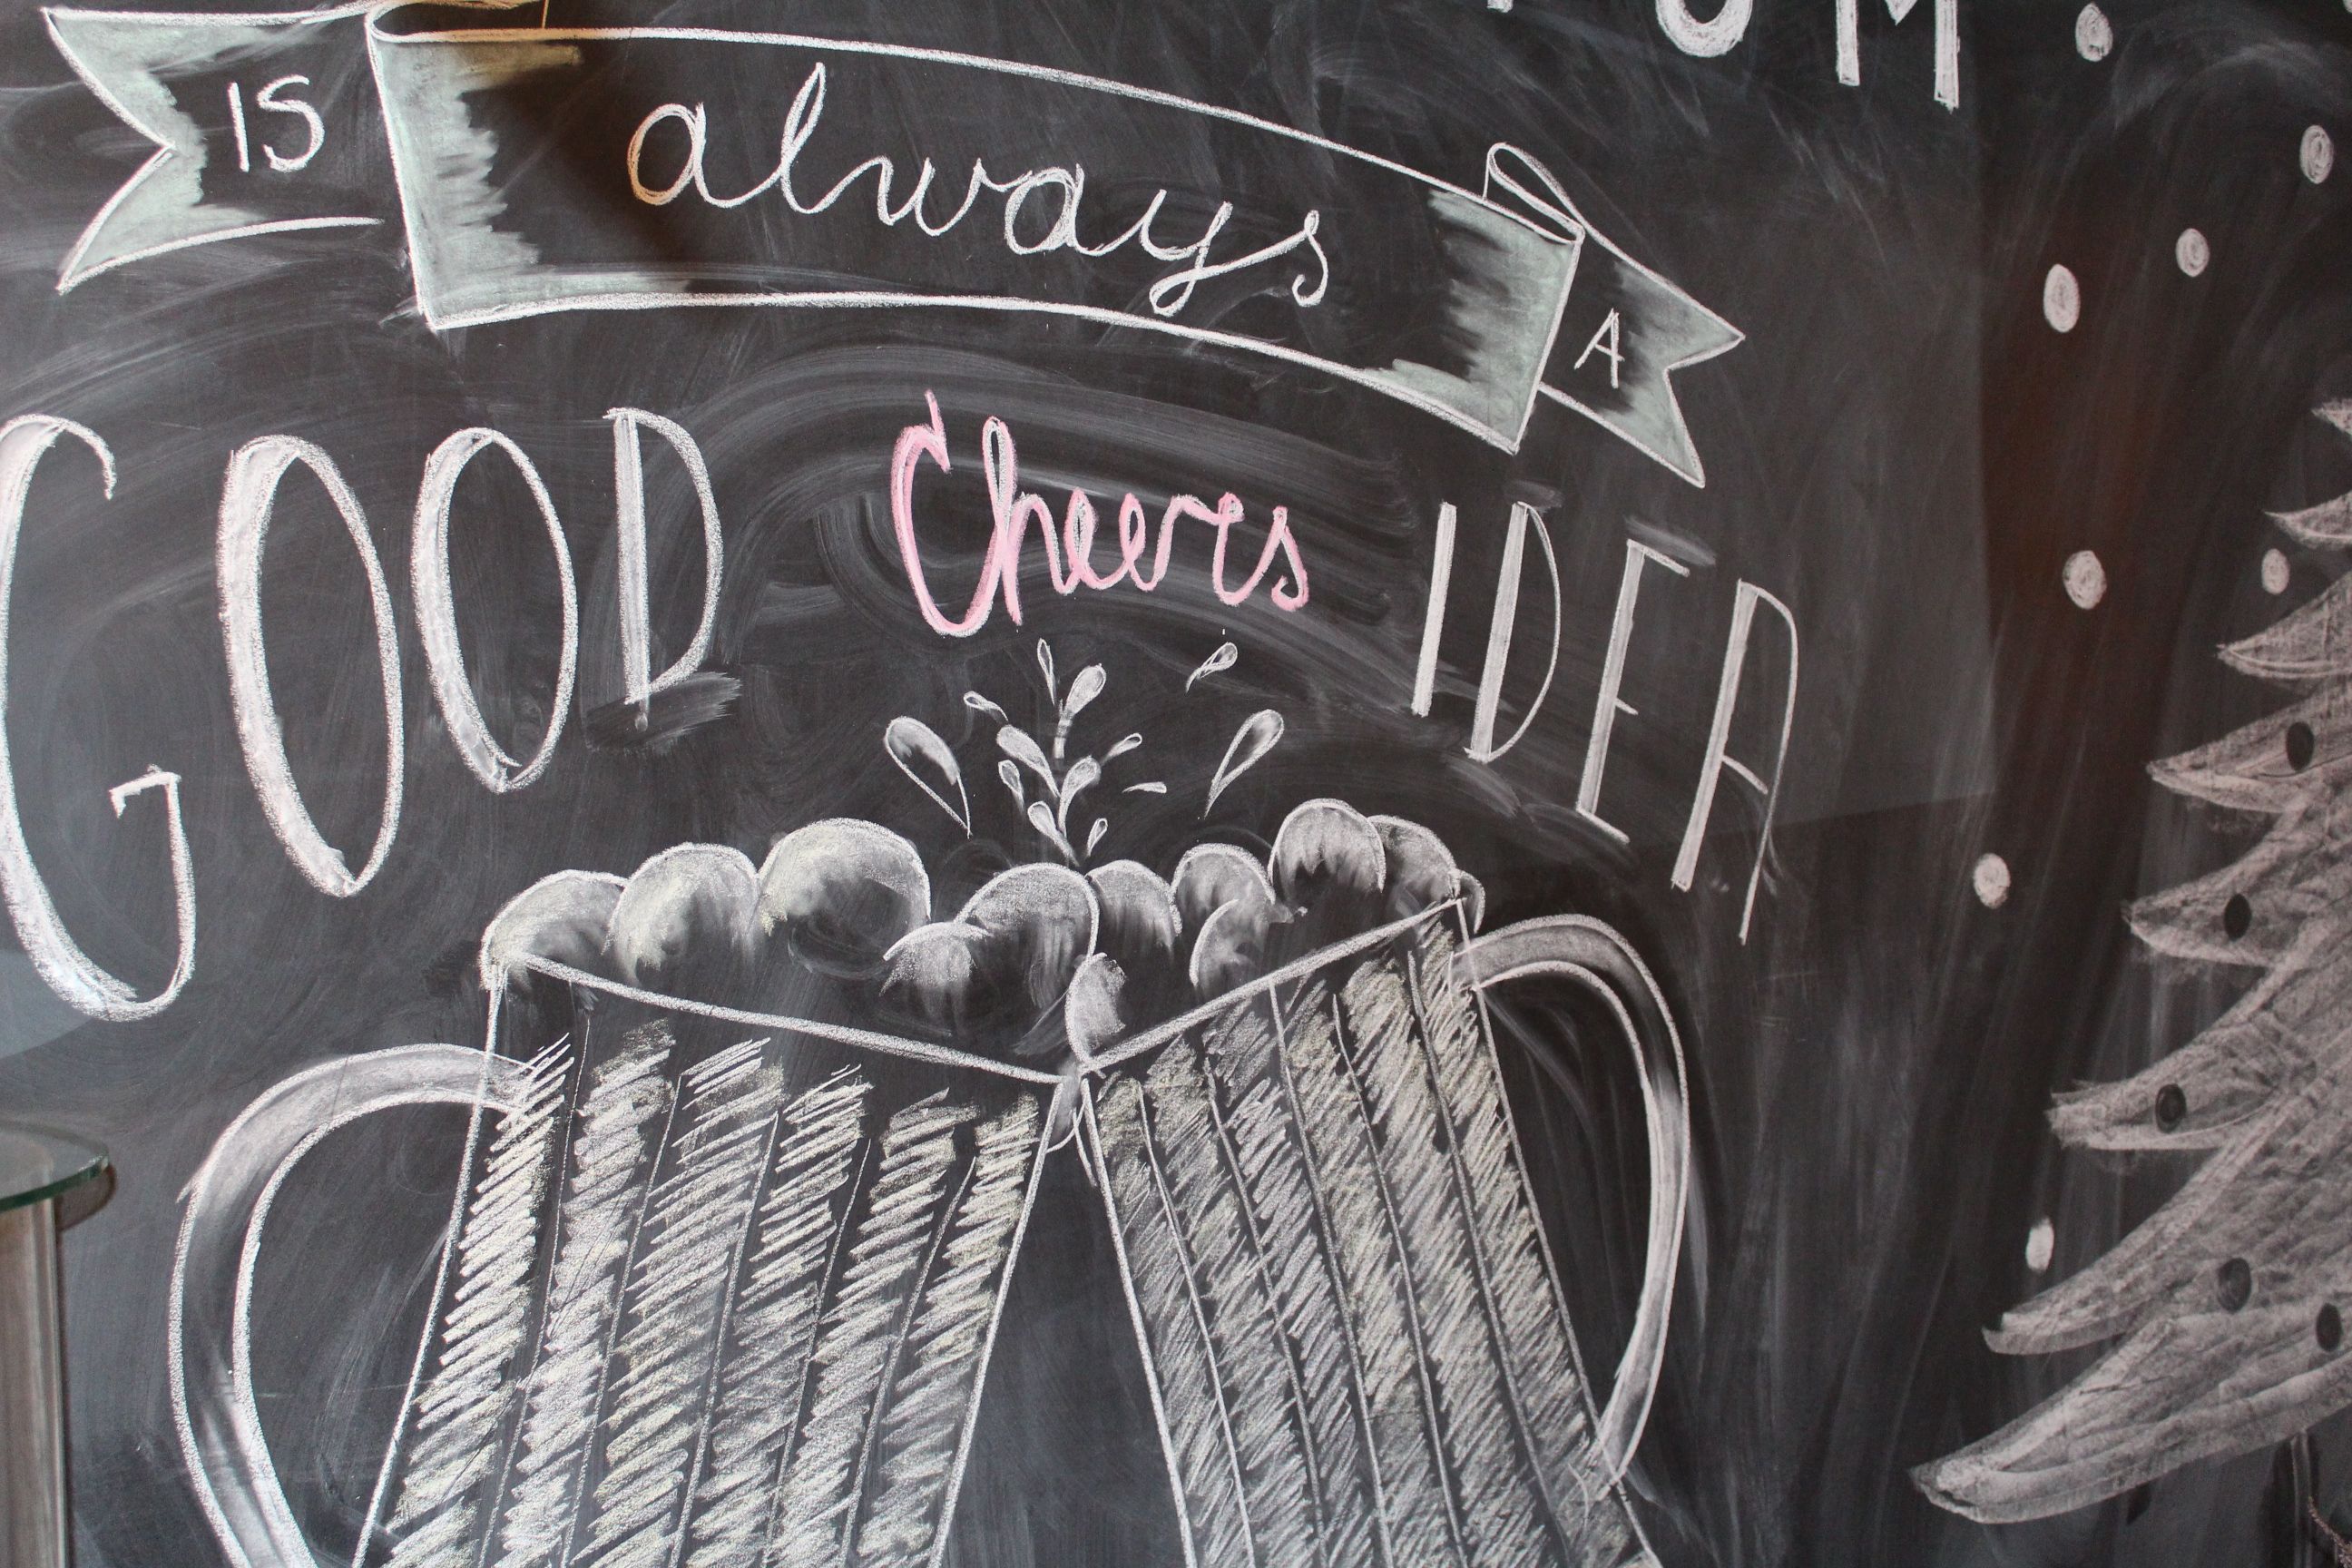 IS always A
GOOD Cheers IDEA